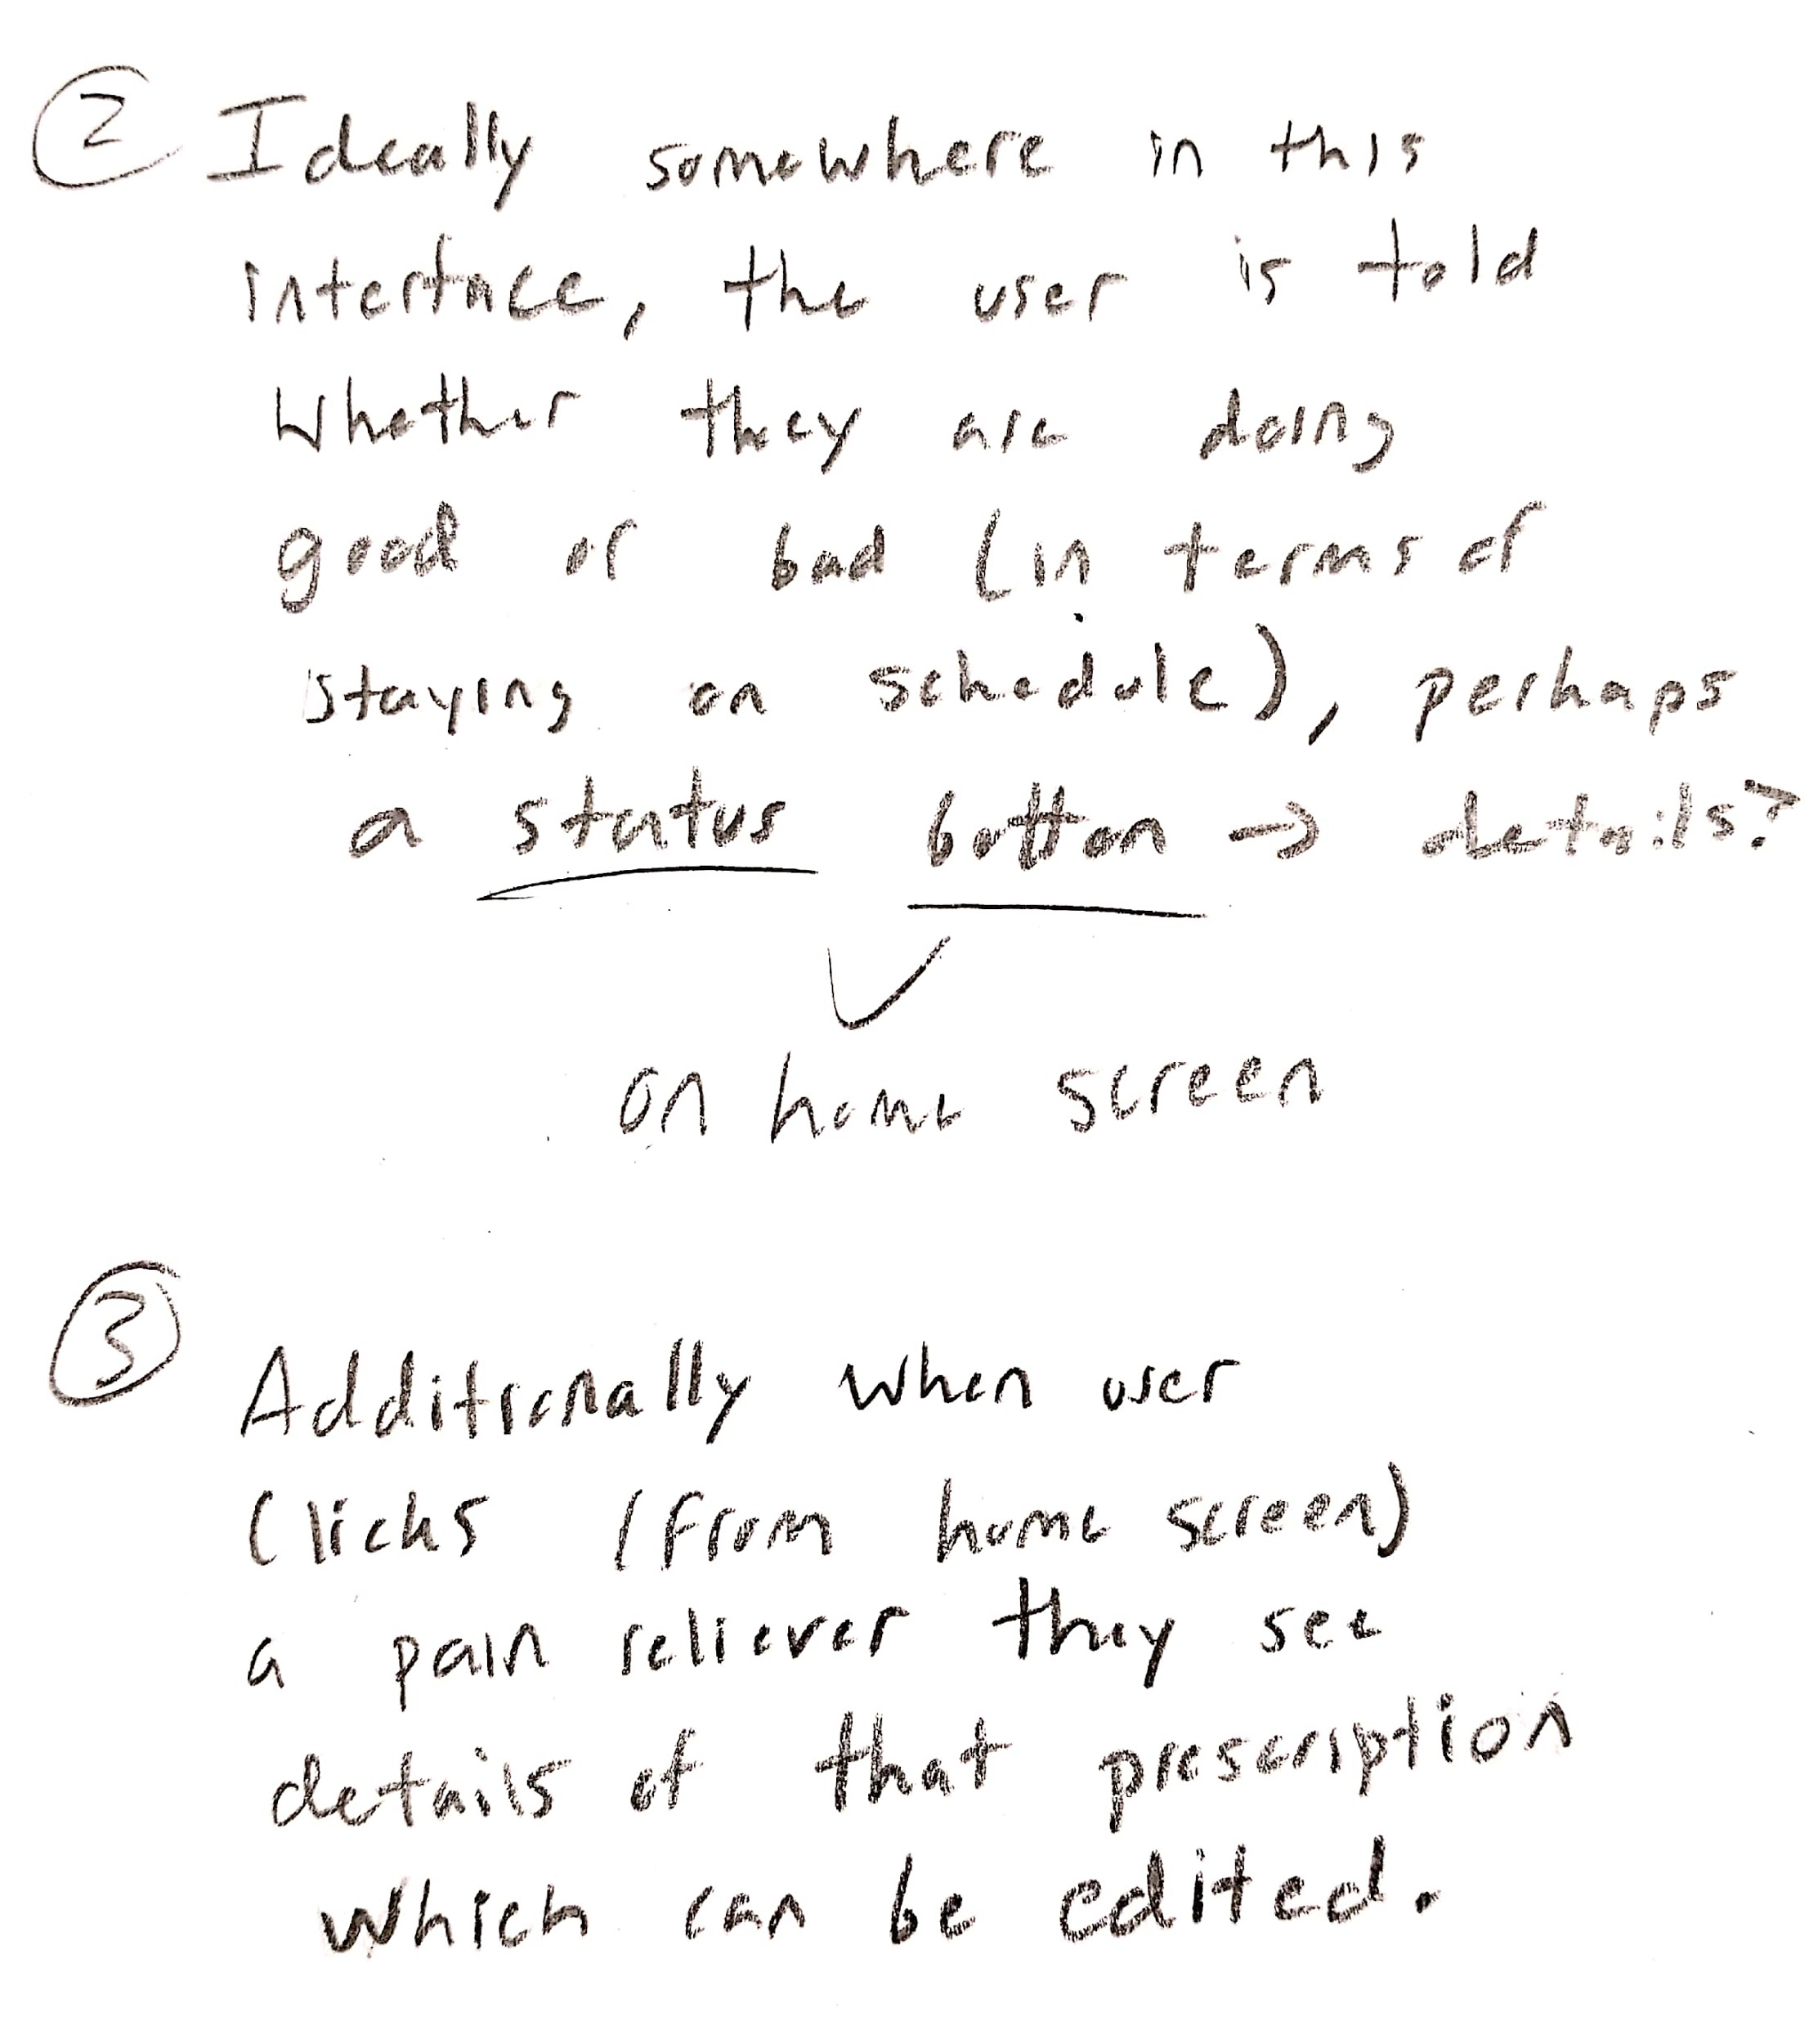 ② Ideally somewhere in this
interface, the user is told
whether they are doing
good or bad (in terms of
staying on schedule), perhaps
a status button → details?
on home screen
③ Additionally when user
clicks (from home screen)
a pain reliever they see
details of that prescription
which can be edited.